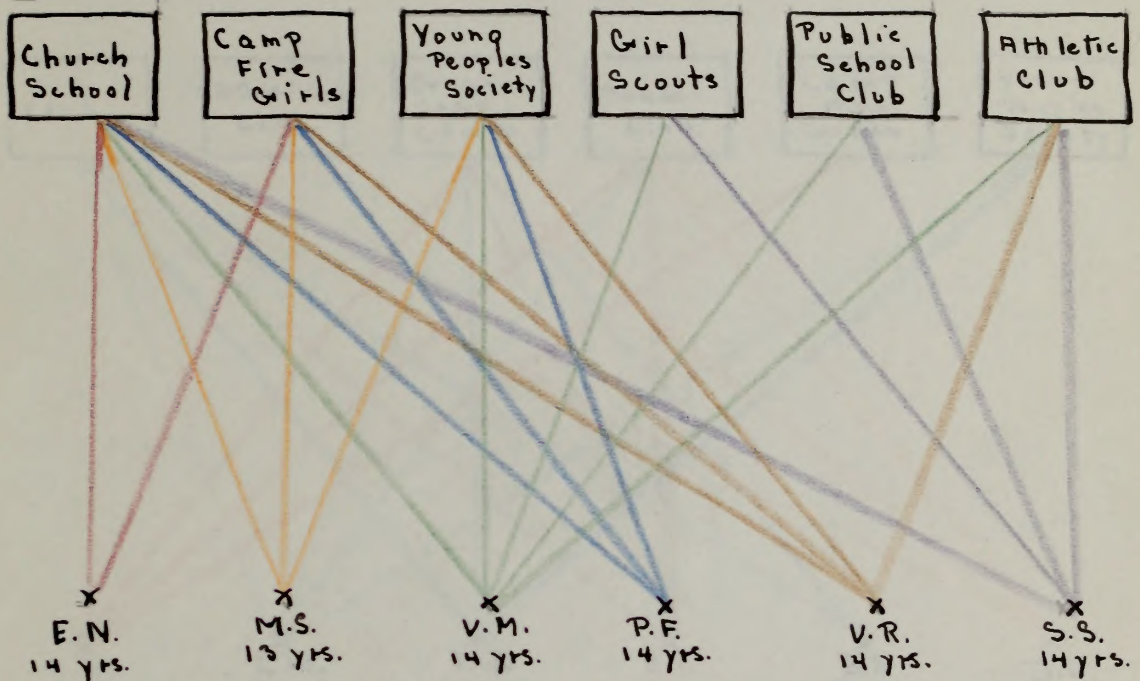 Church
School
Camp
Fire
Girls
Young
Peoples
Society
Girl
Scouts
Public
School
Club
Athletic
Club
E.N.
14 yrs.
M.S.
13 yrs.
V.M.
14 yrs.
P.F.
14 yrs.
V.R.
14 yrs.
S.S.
14 yrs.